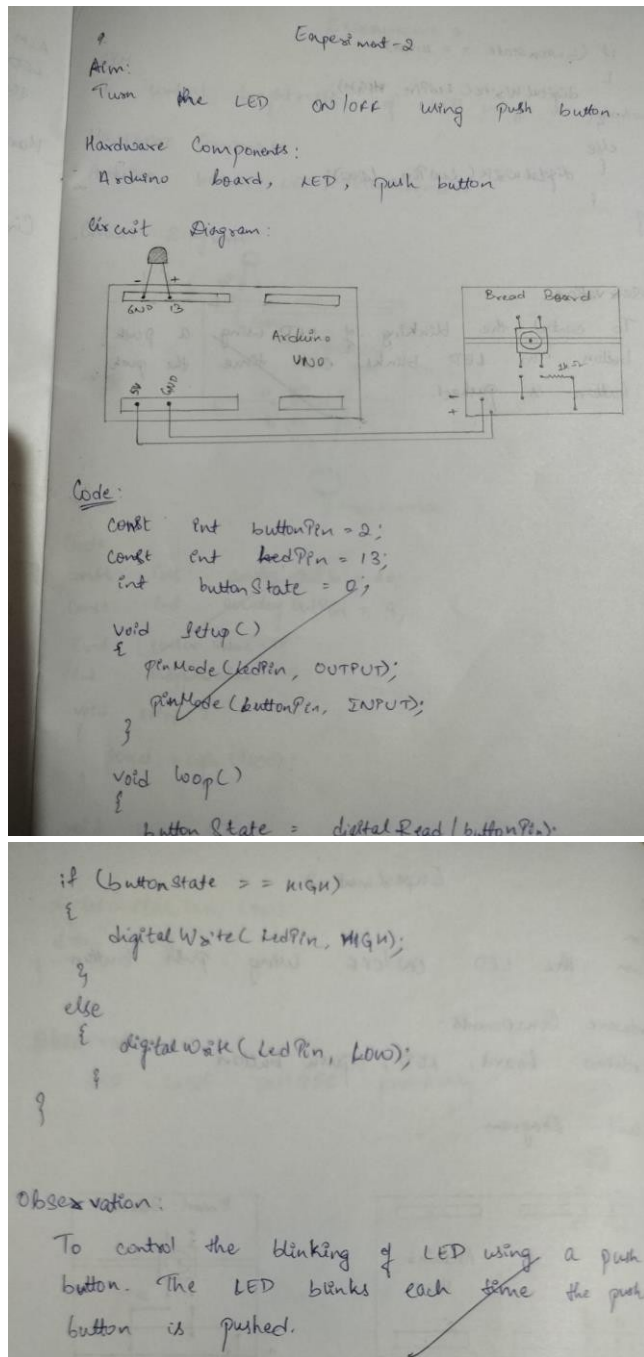 Experiment-2
Aim:
Turn the LED ON/OFF using push button.
Hardware Components:
Arduino board, LED, push button
Circuit Diagram:
- +
GND 13
Arduino
UNO
5V GND
Bread Board
1k Ω
-
+
Code:
const int buttonPin = 2;
const int ledPin = 13;
int buttonState = 0;
void setup()
{
pinMode(ledPin, OUTPUT);
pinMode(buttonPin, INPUT);
}
void loop()
{
button State = digitalRead(buttonPin);
if (buttonState == HIGH)
{
digitalWrite(LedPin, HIGH);
}
else
{ digitalWrite(LedPin, LOW);
}
}
Observation:
To control the blinking of LED using a push
button. The LED blinks each time the push
button is pushed.